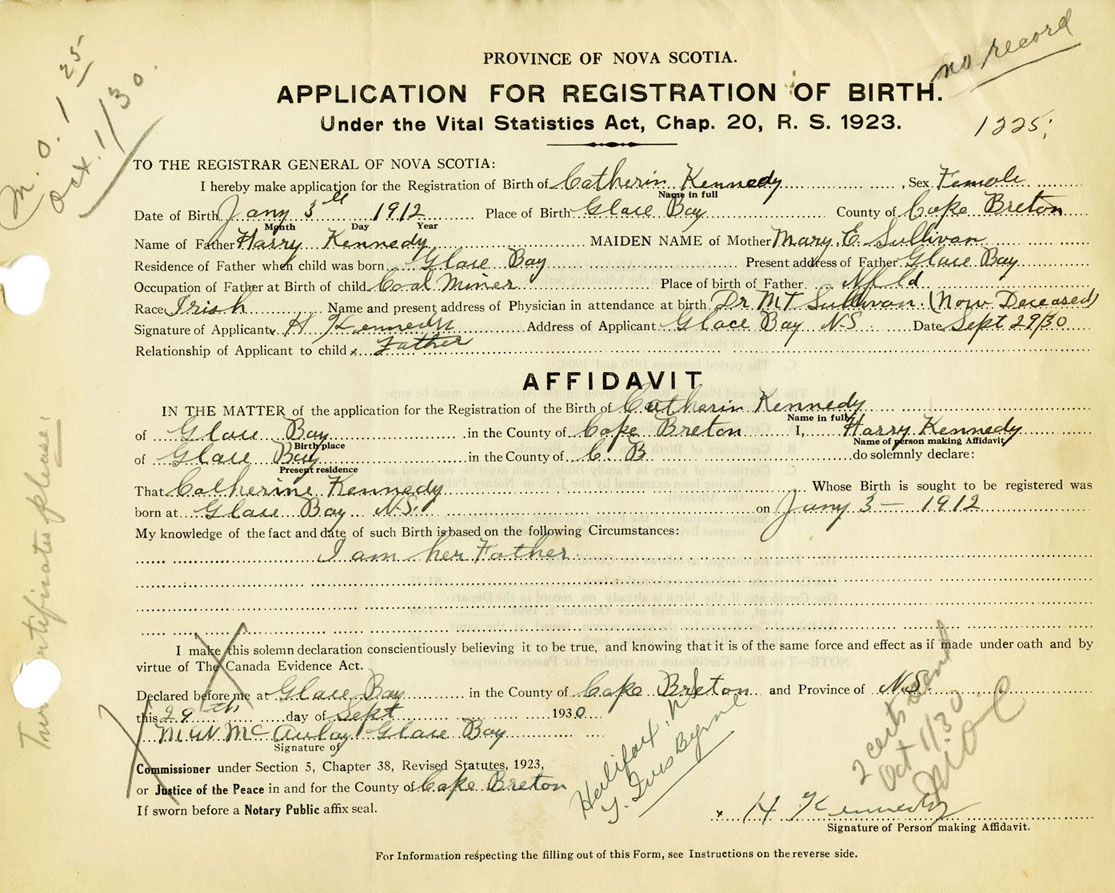 PROVINCE OF NOVA SCOTIA.
no record
APPLICATION FOR REGISTRATION OF BIRTH.
Under the Vital Statistics Act, Chap. 20, R. S. 1923.
1225;
M. O. 1 25
Oct. 1/30.
TO THE REGISTRAR GENERAL OF NOVA SCOTIA:
I hereby make application for the Registration of Birth of Catherin Kennedy, Sex Female
Name in full
Date of Birth Jany 3rd 1912 Place of Birth Glace Bay County of Cape Breton
Month Day Year
Name of Father Harry Kennedy MAIDEN NAME of Mother Mary E. Sullivan
Residence of Father when child was born Glace Bay Present address of Father Glace Bay
Occupation of Father at Birth of child Coal Miner Place of birth of Father Nfld
Race Irish Name and present address of Physician in attendance at birth Dr MT Sullivan (Now Deceased)
Signature of Applicant H Kennedy Address of Applicant Glace Bay N.S. Date Sept 29/30
Relationship of Applicant to child Father
AFFIDAVIT
IN THE MATTER of the application for the Registration of the Birth of Catherin Kennedy
Name in full
of Glace Bay in the County of Cape Breton I, Harry Kennedy
Birth place Name of person making Affidavit
of Glace Bay in the County of C B do solemnly declare:
Present residence
That Catherine Kennedy Whose Birth is sought to be registered was
born at Glace Bay N.S. on Jany 3 — 1912
My knowledge of the fact and date of such Birth is based on the following Circumstances:
I am her Father
I make this solemn declaration conscientiously believing it to be true, and knowing that it is of the same force and effect as if made under oath and by
virtue of The Canada Evidence Act.
Declared before me at Glace Bay in the County of Cape Breton and Province of N.S.
this 29th day of Sept 1930
McAulay Glace Bay
Signature of
Commissioner under Section 5, Chapter 38, Revised Statutes, 1923,
or Justice of the Peace in and for the County of Cape Breton
If sworn before a Notary Public affix seal.
Halifax, N
Byrne
2 certs sent
Oct 1/30
x H Kennedy
Signature of Person making Affidavit.
For Information respecting the filling out of this Form, see Instructions on the reverse side.
Two certificates please!